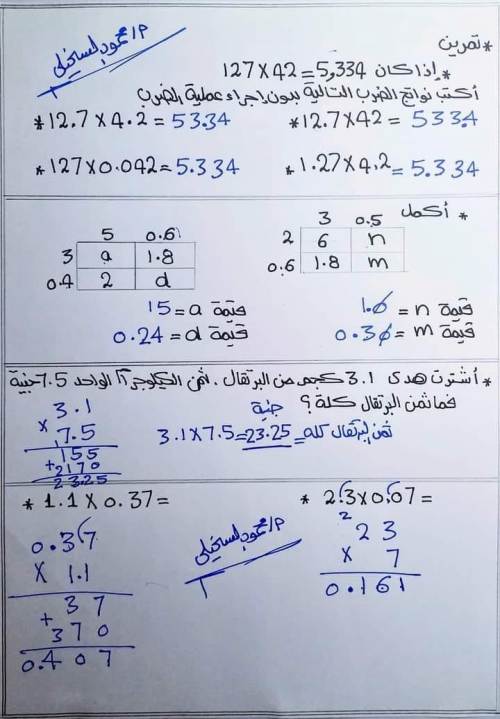 * تمرين
* إذا كان 127 × 42 = 5,334
أكتب نواتج الضرب التالية بدون إجراء عملية الضرب
* 12.7 × 42 = 533.4
* 12.7 × 4.2 = 53.34
* 1.27 × 4.2 = 5.334
* 127 × 0.042 = 5.334
* أكمل
3 0.5
2 6 n
0.6 1.8 m
قيمة n = 1.0
قيمة m = 0.30
5 0.6
3 a 1.8
0.4 2 d
قيمة a = 15
قيمة d = 0.24
* أشترت هدى 3.1 كجم من البرتقال . ثمن الكيلوجرام الواحد 7.5 جنية
فما ثمن البرتقال كلة ؟
ثمن البرتقال كله = 3.1 × 7.5 = 23.25 جنية
3.1
× 7.5
155
+ 2170
23.25
* 2.3 × 0.07 =
2
23
× 7
0.161
* 1.1 × 0.37 =
0.37
× 1.1
37
+ 370
0.407